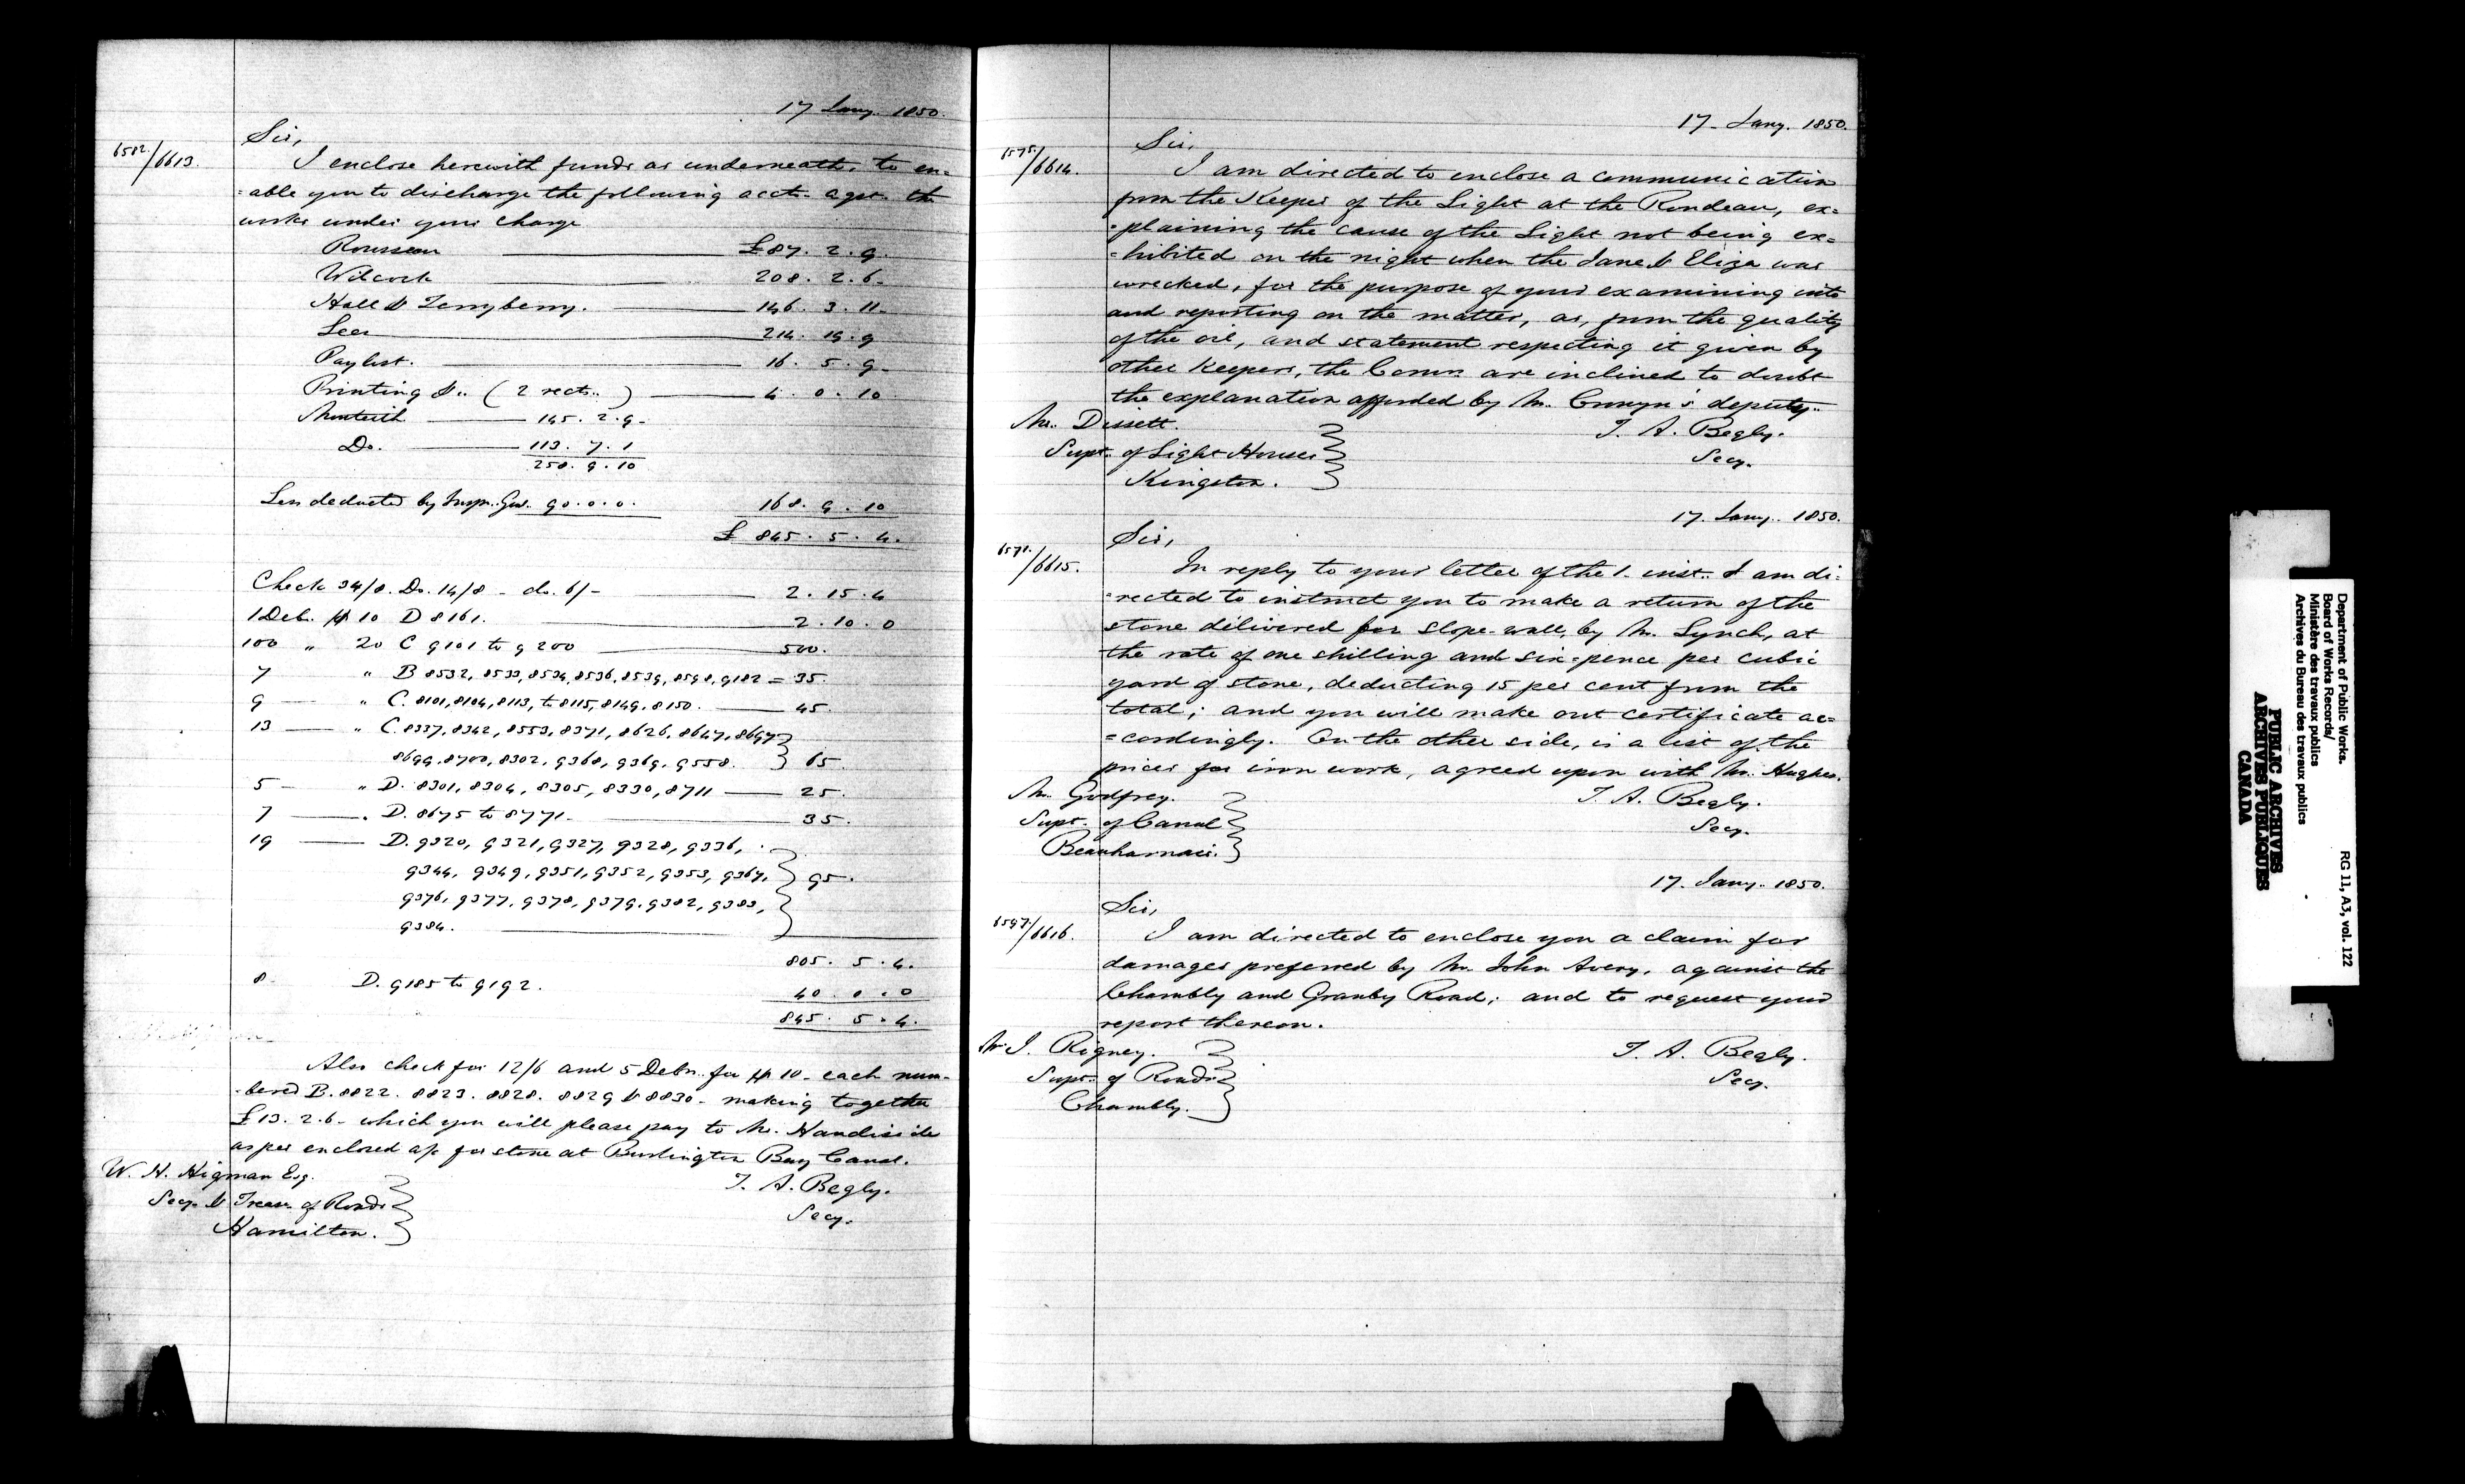 17 Jany. 1850.
Sir,
6582./6613.
I enclose herewith funds as underneath, to en=
=able you to discharge the following accts. agst. the
works under your charge
Rousseau £87. 2. 9.
Wilcock 208. 2. 6.
Hall & Terryberry. 146. 3. 11.
Lees 214. 19. 9
Paylist. 16. 5. 9.
Printing &c. (2 rects..) 4. 0. 10
Monteith 145. 2. 9.
Do. 113. 7. 1
258. 9. 10
Less deducted by Insp. Genl. 90. 0. 0. 168. 9. 10
£ 845. 5. 4.
Check 34/8. Do. 14/8 - do. 6/- 2. 15. 4
1 Deb. $ 10 D 8161. 2. 10. 0
100 " 20 C 9101 to 9200 500.
7 " B 8532, 8533, 8534, 8536, 8539, 8598, 9182 = 35.
9 " C. 8101, 8104, 8113, to 8115, 8149. 8150. 45.
13 " C. 8337, 8342, 8553, 8371, 8626, 8647, 8697
8699, 8700, 8302, 9368, 9369, 9558. } 65
5 " D. 8301, 8304, 8305, 8330, 8711 25.
7 " D. 8675 to 8771. 35.
19 D. 9320, 9321, 9327, 9328, 9336,
9344, 9349, 9351, 9352, 9353, 9367, } 95.
9376, 9377, 9378, 9379, 9382, 9383,
9384.
805. 5. 4.
8. D. 9185 to 9192. 40. 0. 0
845. 5. 4.
Also check for 12/6 and 5 Debs. for $ 10 - each num-
-bered B. 8822. 8823. 8828. 8829 & 8830 - making together
£13. 2. 6 - which you will please pay to Mr. Handiside
as per enclosed a/c for stone at Burlington Bay Canal.
W. H. Higman Esq.
T. A. Begly.
Secy. & Treasr. of Roads
Secy.
Hamilton.
17. Jany. 1850.
Sir,
6575./6614.
I am directed to enclose a communication
from the Keeper of the Light at the Rondeau, ex=
-plaining the cause of the Light not being ex=
-hibited on the night when the Jane & Eliza was
wrecked, for the purpose of your examining into
and reporting on the matter, as, from the quality
of the oil, and statement respecting it given by
other Keepers, the Comrs. are inclined to doubt
the explanation afforded by Mr. Cronyn's deputy.
Mr. Dissett.
T. A. Begly.
Supt. of Light Houses
Secy.
Kingston.
17. Jany. 1850.
Sir,
6571./6615.
In reply to your letter of the 1. inst. I am di=
=rected to instruct you to make a return of the
stone delivered for slope-wall, by Mr. Lynch, at
the rate of one shilling and six=pence per cubic
yard of stone, deducting 15 per cent from the
total; and you will make out certificate ac=
=cordingly. On the other side, is a list of the
prices for iron work, agreed upon with Mr. Hughes.
Mr. Godfrey.
T. A. Begly.
Supt. of Canal
Secy.
Beauharnois.
17. Jany. 1850.
Sir,
6597./6616.
I am directed to enclose you a claim for
damages preferred by Mr. John Avery, against the
Chambly and Granby Road; and to request your
report thereon.
Mr J. Rigney.
T. A. Begly.
Supt. of Roads
Secy.
Chambly.
Department of Public Works.
Board of Works Records/
Ministère des travaux publics
Archives du Bureau des travaux publics
RG 11, A3, vol. 122
PUBLIC ARCHIVES
ARCHIVES PUBLIQUES
CANADA